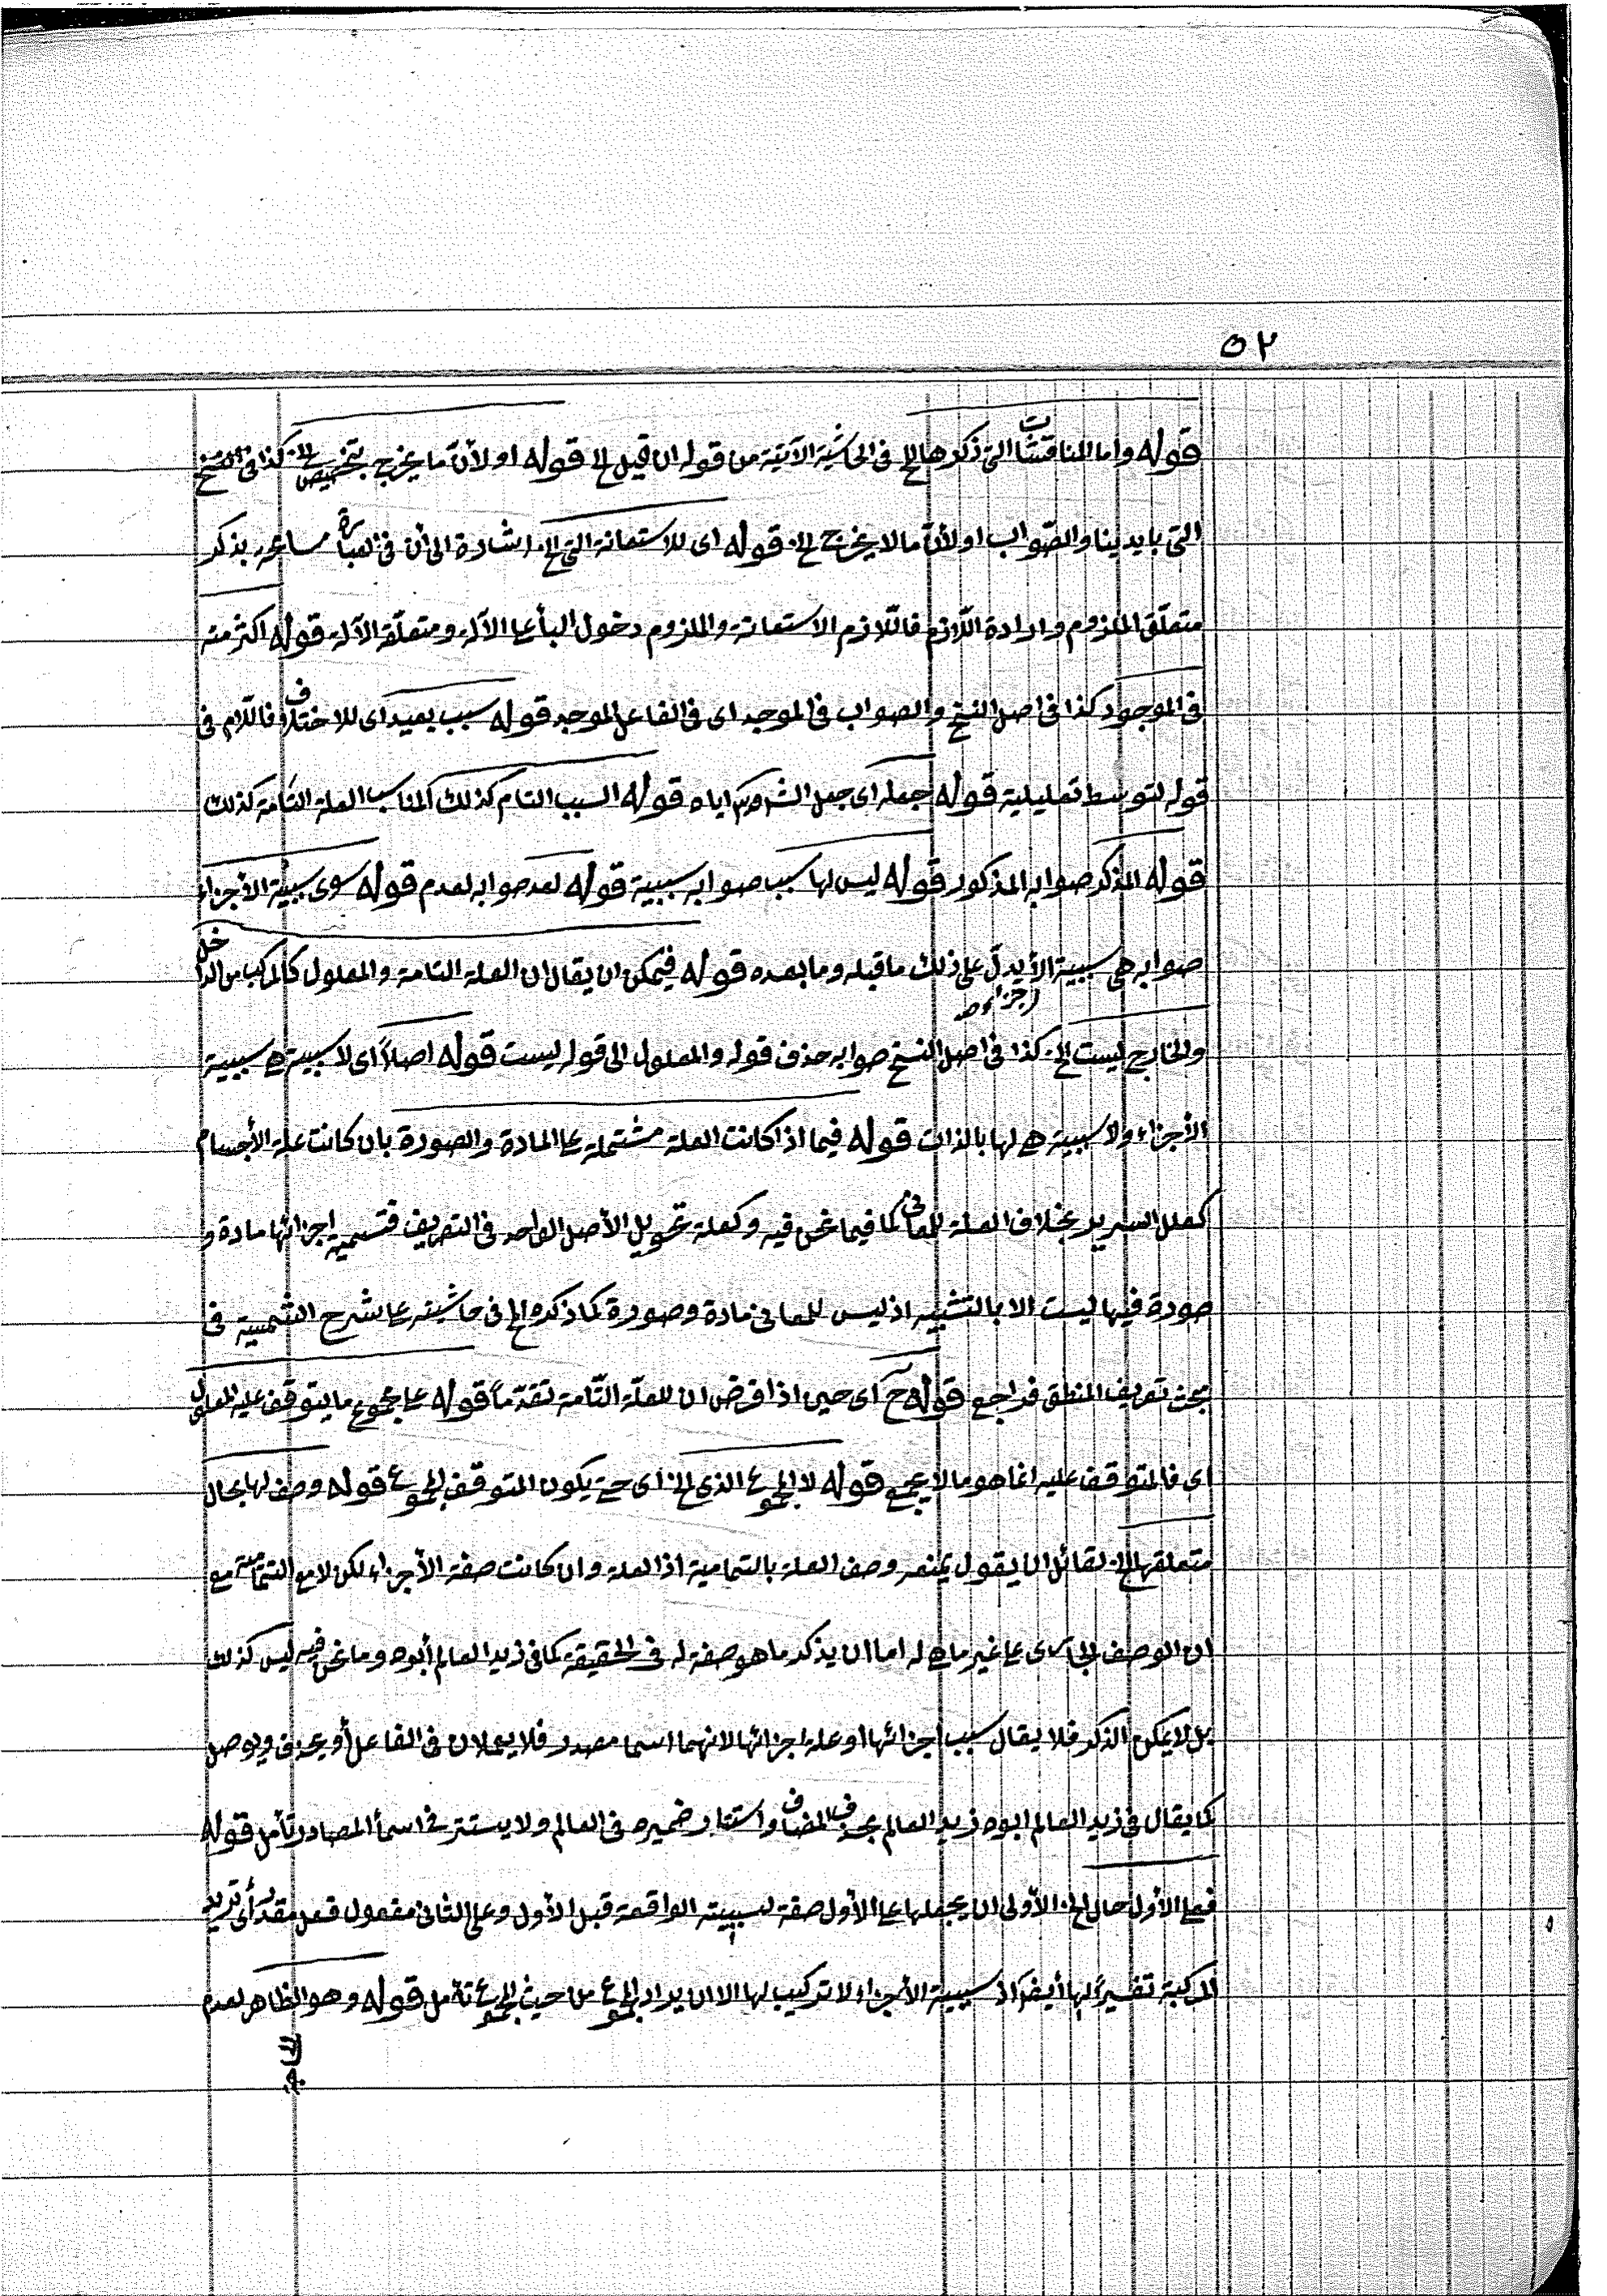 ٥٢
قوله واما المناقشات التى ذكرها الخ فى الحاشية الآتية من قوله ان قيل الخ قوله او لأن ما يخرج بتخصيص الخ كذا فى النسخ
التى بايدينا والصّواب او لأن ما لا يخرج الخ قوله اى للاستعانة التى الخ اشارة الى أن فى العبارة مسامحة بذكر
متعلّق الملزوم وارادة اللّازم فاللّازم الاستعانة والملزوم دخول البأ على الآلة ومتعلّقه الآلة قوله اكثر منه
فى الموجود كذا فى اصل النسخ والصواب فى الموجد اى فى الفاعل الموجد قوله سبب بعيد اى للاختلاف فاللّام فى
قوله لتوسط تعليلية قوله جعله اى جعل اياه قوله السبب التام كذلك المناسب العلة التامة كذلك
قوله المذكر صوابه المذكور قوله ليس لها سبب صوابه سببية قوله لعد صوابه لعدم قوله سوى سببية الأجزاء
صوابه هى سببية الأجزاء يدلّ على ذلك ما قبله وما بعده قوله فيمكن ان يقال ان العلة التامة والمعلول كالمركب من الداخل
والخارج ليست الخ كذا فى اصل النسخ صوابه حذف قوله والمعلول الى قوله ليست قوله اصلاً اى لا سببية هى سببية
الأجزاء ولا سببية هى لها بالذات قوله فيما اذا كانت العلة مشتملة على المادة والصورة بان كانت علة الأجسام
كعلل السرير بخلاف العلة للمعانى كما فيما نحن فيه وكعلة تحويل الأصل الواحد فى التصريف فتسمية اجزائها مادة و
صورة فيها ليست الا بالتشبيه اذ ليس للمعانى مادة وصورة كما ذكره الخ فى حاشيته على شرح الشمسية فى
بحث تعريف المنطق فراجع قوله ح اى حين اذا فرض ان للعلة التّامة تقدّماً قوله على مجموع ما يتوقف عليه المعلول
اى فالمتوقف عليه انما هو ما لا يجمع قوله لا المجموع الذى الخ اى حتى يكون المتوقف المجموع قوله وصف لها بحال
متعلقها الخ لقائل ان يقول يمنعه وصف العلة بالتمامية اذ العلة وان كانت صفة الأجزاء لكن لا مع التمامية مع
ان الوصف الجارى على غير ما هى له اما ان يذكر ما هو صفة له فى الحقيقة كما فى زيد العالم أبوه وما نحن فيه ليس كذلك
بل لا يمكن الذكر فلا يقال سبب اجزائها او علة اجزائها لانهما اسما مصدر فلا يعملان فى الفاعل أو يحذف ويوصل
كما يقال فى زيد العالم ابوه زيد العالم بحذف المضاف واستتار ضميره فى العالم ولا يستتر فى اسمأ المصادر تأمل قوله
فعلى الأول حال الخ الأولى ان يجعلها على الأول صفة لسببيته الواقعة قبل الأول وعلى الثانى مفعول فعل مقدر أى تريد
المركبة تفسيرًا لها أيضًا اذ سببية الأجزاء لا تركيب لها الا ان يراد المجموع من حيث المجموع تأمل قوله وهو الظاهر لعدم